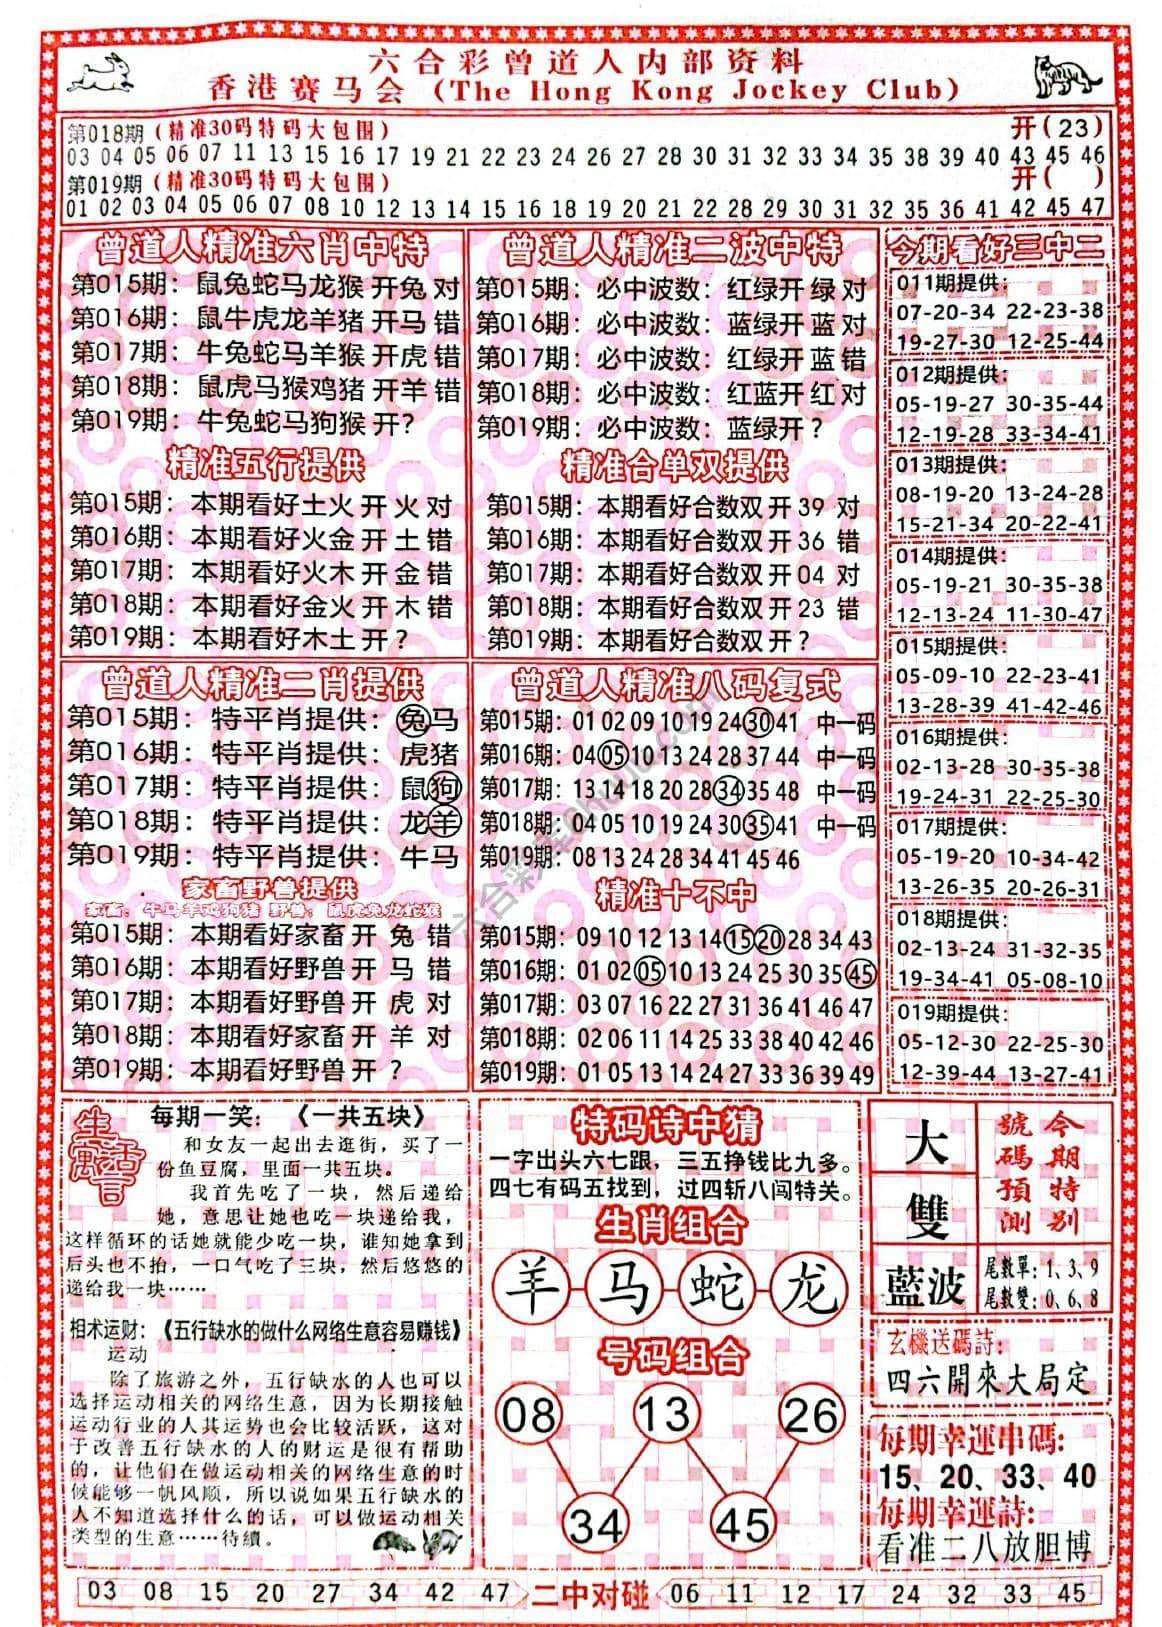 六合彩曾道人内部资料
香港赛马会（The Hong Kong Jockey Club）
第018期（精准30码特码大包围） 开(23)
03 04 05 06 07 11 13 15 16 17 19 21 22 23 24 26 27 28 30 31 32 33 34 35 38 39 40 43 45 46
第019期（精准30码特码大包围） 开( )
01 02 03 04 05 06 07 08 10 12 13 14 15 16 18 19 20 21 22 28 29 30 31 32 35 36 41 42 45 47
曾道人精准六肖中特
第015期：鼠兔蛇马龙猴开兔 对
第016期：鼠牛虎龙羊猪开马 错
第017期：牛兔蛇马羊猴开虎 错
第018期：鼠虎马猴鸡猪开羊 错
第019期：牛兔蛇马狗猴开？
精准五行提供
第015期：本期看好土火开火 对
第016期：本期看好火金开土 错
第017期：本期看好火木开金 错
第018期：本期看好金火开木 错
第019期：本期看好木土开？
曾道人精准二波中特
第015期：必中波数：红绿开 绿 对
第016期：必中波数：蓝绿开 蓝 对
第017期：必中波数：红绿开 蓝 错
第018期：必中波数：红蓝开 红 对
第019期：必中波数：蓝绿开？
精准合单双提供
第015期：本期看好合数双开39 对
第016期：本期看好合数双开36 错
第017期：本期看好合数双开04 对
第018期：本期看好合数双开23 错
第019期：本期看好合数双开？
今期看好三中二
011期提供：
07-20-34 22-23-38
19-27-30 12-25-44
012期提供：
05-19-27 30-35-44
12-19-28 33-34-41
013期提供：
08-19-20 13-24-28
15-21-34 20-22-41
014期提供：
05-19-21 30-35-38
12-13-24 11-30-47
015期提供：
05-09-10 22-23-41
13-28-39 41-42-46
016期提供：
02-13-28 30-35-38
19-24-31 22-25-30
017期提供：
05-19-20 10-34-42
13-26-35 20-26-31
018期提供：
02-13-24 31-32-35
19-34-41 05-08-10
019期提供：
05-12-30 22-25-30
12-39-44 13-27-41
曾道人精准二肖提供
第015期：特平肖提供：兔马
第016期：特平肖提供：虎猪
第017期：特平肖提供：鼠狗
第018期：特平肖提供：龙羊
第019期：特平肖提供：牛马
家畜野兽提供
家畜：牛马羊鸡狗猪 野兽：鼠虎兔龙蛇猴
第015期：本期看好家畜开 兔 错
第016期：本期看好野兽开 马 错
第017期：本期看好野兽开 虎 对
第018期：本期看好家畜开 羊 对
第019期：本期看好野兽开 ？
曾道人精准八码复式
第015期：01 02 09 10 19 24 30 41 中一码
第016期：04 05 10 13 24 28 37 44 中一码
第017期：13 14 18 20 28 34 35 48 中一码
第018期：04 05 10 19 24 30 35 41 中一码
第019期：08 13 24 28 34 41 45 46
精准十不中
第015期：09 10 12 13 14 15 20 28 34 43
第016期：01 02 05 10 13 24 25 30 35 45
第017期：03 07 16 22 27 31 36 41 46 47
第018期：02 06 11 14 25 33 38 40 42 46
第019期：01 05 13 14 24 27 33 36 39 49
生活寓言
每期一笑：《一共五块》
和女友一起出去逛街，买了一
份鱼豆腐，里面一共五块。
我首先吃了一块，然后递给
她，意思让她也吃一块递给我，
这样循环的话她就能少吃一块，谁知她拿到
后头也不抬，一口气吃了三块，然后悠悠的
递给我一块……
相术运财：《五行缺水的做什么网络生意容易赚钱》
运动
除了旅游之外，五行缺水的人也可以
选择运动相关的网络生意，因为长期接触
运动行业的人其运势也会比较活跃，这对
于改善五行缺水的人的财运是很有帮助
的，让他们在做运动相关的网络生意的时
候能够一帆风顺，所以说如果五行缺水的
人不知道选择什么的话，可以做运动相关
类型的生意……待續。
特码诗中猜
一字出头六七跟，三五挣钱比九多。
四七有码五找到，过四斩八闯特关。
生肖组合
羊 马 蛇 龙
号码组合
08 13 26
34 45
大
雙
藍波
今期特别
號碼預測
尾數單：1、3、9
尾數雙：0、6、8
玄機送碼詩：
四六開來大局定
每期幸運串碼：
15、20、33、40
每期幸運詩：
看准二八放胆博
03 08 15 20 27 34 42 47 二中对碰 06 11 12 17 24 32 33 45